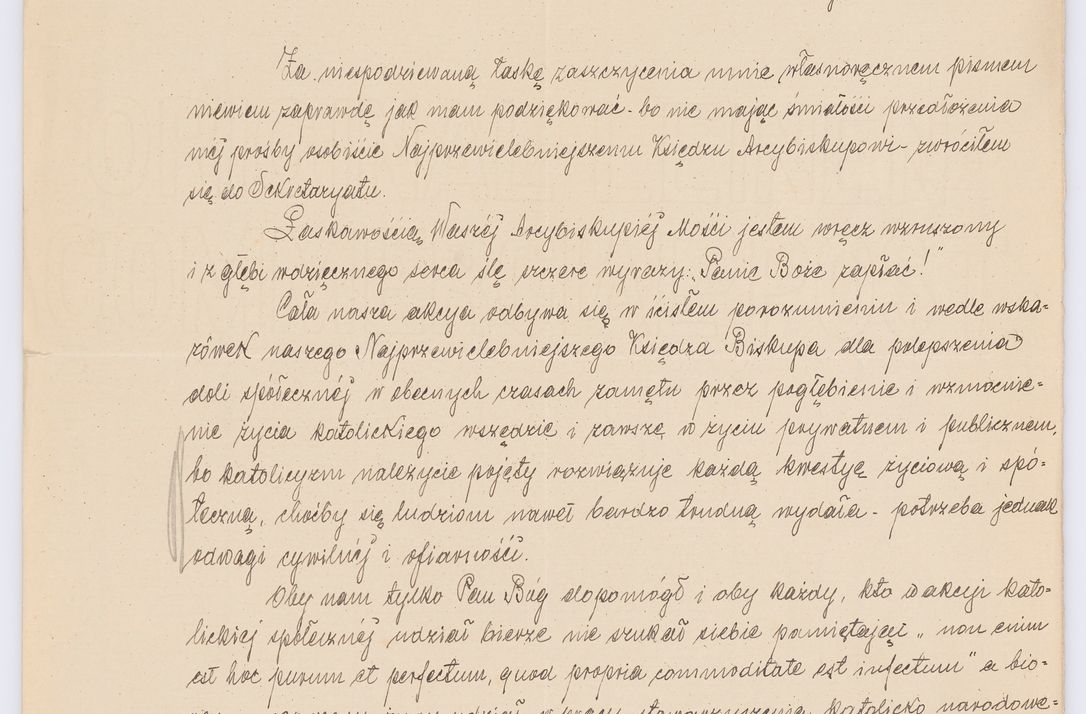 Za niespodziewaną łaskę zaszczycenia mnie własnoręcznem pismem
niewiem zaprawdę jak mam podziękować - bo nie mając śmiałości przedłożenia
méj prośby osobiście Najprzewielebniejszemu Księdzu Arcybiskupowi - zwróciłem
się do Sekretaryatu.
Łaskawością Waszéj Arcybiskupiéj Mości jestem wręcz wzruszony
i z głębi wdzięcznego serca ślę szczere wyrazy: „Panie Boże zapłać!"
Cała nasza akcya odbywa się w ścisłem porozumieniu i wedle wska-
zówek naszego Najprzewielebniejszego Księdza Biskupa dla polepszenia
doli społecznéj w obecnych czasach zamętu przez pogłębienie i wzmocnie-
nie życia katolickiego wszędzie i zawsze w życiu prywatnem i publicznem,
bo katolicyzm należycie pojęty rozwiązuje każdą kwestyę życiową i spo-
łeczną, choćby się ludziom nawet bardzo trudną wydała - potrzeba jednak
odwagi cywilnéj i ofiarności.
Oby nam tylko Pan Bóg dopomógł i oby każdy, kto w akcyi kato-
lickiej społecznéj udział bierze nie szukał siebie pamiętając „non enim
est hoc purum et perfectum, quod propria commoditate est infectum" a bio-
udział w pracy stowarzyszenia katolicko narodowe-